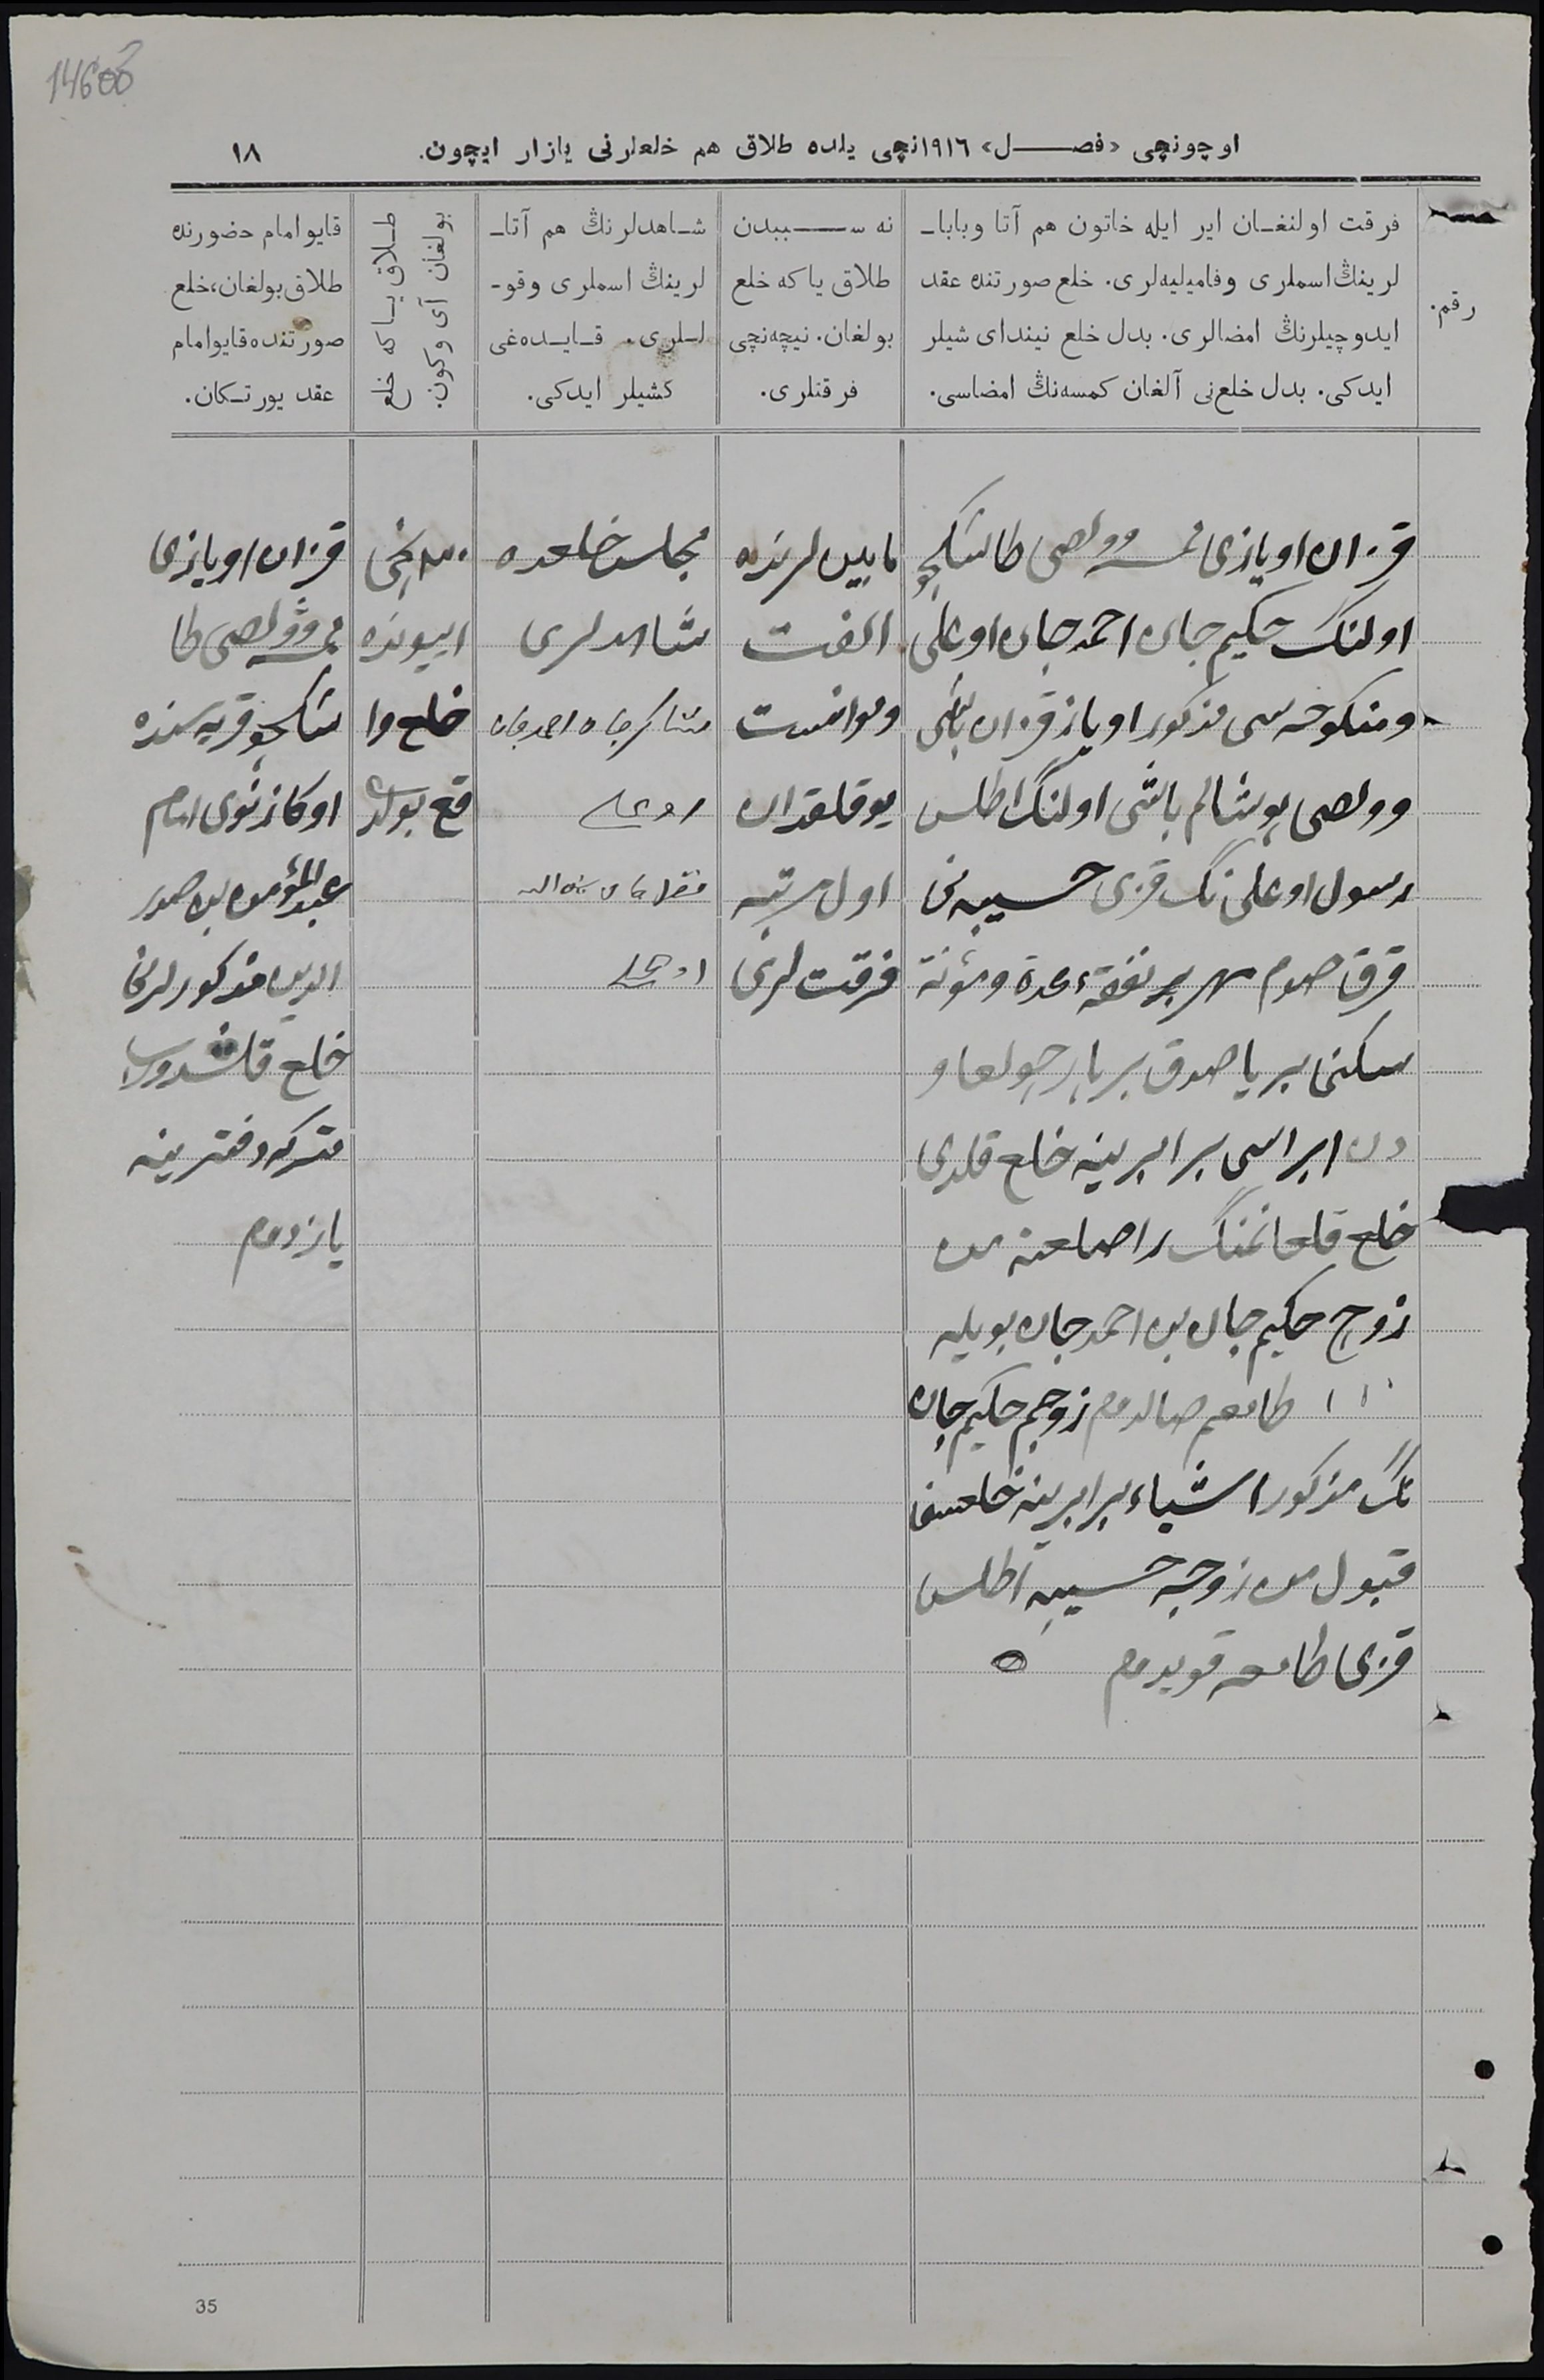 14600
اوچونچی «فصـــل» ١٩١٦نچی یلده طلاق هم خلعلرنی یازار ایچون.
١٨
رقم.
فرقت اولنغـان ایر ایله خاتون هم آتا وبابا۔
لرینڭ اسملری وفامیلیه‌لری. خلع صورتنده عقد
ایدوچیلرنڭ امضالری. بدل خلع نیندای شیلر
ایدکی. بدل خلع‌نی آلغان کمسه‌نڭ امضاسی.
نه ســـببدن
طلاق یا که خلع
بولغان. نیچه‌نچی
فرقتلری.
شـاهدلرنڭ هم آتا۔
لرینڭ اسملری وقو۔
لـلری. قـایـده‌غی
کشیلر ایدکی.
طـلاق یـا که خلع
بولغان آی وکون.
قایو امام حضورنده
طلاق بولغان، خلع
صورتنده قایو امام
عقد یورتـکان.
قزان اویازی وولصی
اولنڭ حکیم جان احمد جان اوغلی
ومنکوحه سی مذکور اویاز قزان باشی
وولصی باشی اولنڭ اطلس
رسول اوغلی نڭ قزی حسیبه نی
قرق صوم مهر بر نفقهٔ عدة ومؤنة
سکنی بر یاصدق بر
ابراسی برابرینه خلع قلدی
خلع
زوج حکیم جان بن احمد جان بویله
طامغم صالدوم زوجم حکیم جان
نڭ مذکور اشیاء برابرینه خلعسنی
قبول من زوجه حسیبه اطلس
قزی طامغه قویدوم
مابین لرنده
الفت
وموانست
یوقلقدان
اول مرتبه
فرقت لری
مجلس خلعده
شاهدلری
شاکرجان احمدجان
اوغلی
اوغلی
نچی
اییونده
خلع وا
قع بولدی
قزان اویازی
وولصی طا
شکچو قریه سنده
اوکازنوی امام
عبدالمؤمن بن صدر
الدین مذکورلرنی
خلع قلشدروب
متر که دفترینه
یازدوم
35